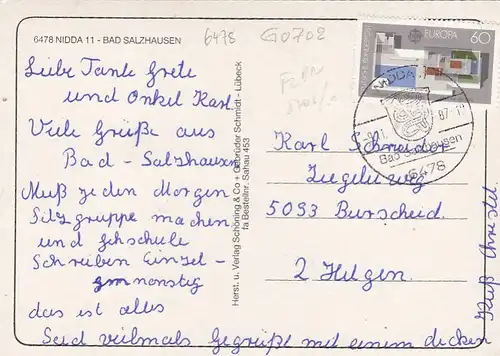 6478 NIDDA 11 - BAD SALZHAUSEN
6478 G0702
Liebe Tante Grete
und Onkel Karl.
Viele Grüße aus
Bad - Salzhausen
Muß jeden Morgen
Sitzgruppe machen
und gehschule
Schreiben Einzel -
gymnastig
das ist alles
Seid vielmals Gegrüßt mit einem dicken
Kuß Christel
Herst. u. Verlag Schöning & Co · Gebrüder Schmidt - Lübeck
fa Bestellnr. Sahau 453
EUROPA 60
DEUTSCHE BUNDESPOST
NIDDA
87-11
Bad Salzhausen
6478
Karl Schneider
5093 Burscheid.
2 Hilgen.